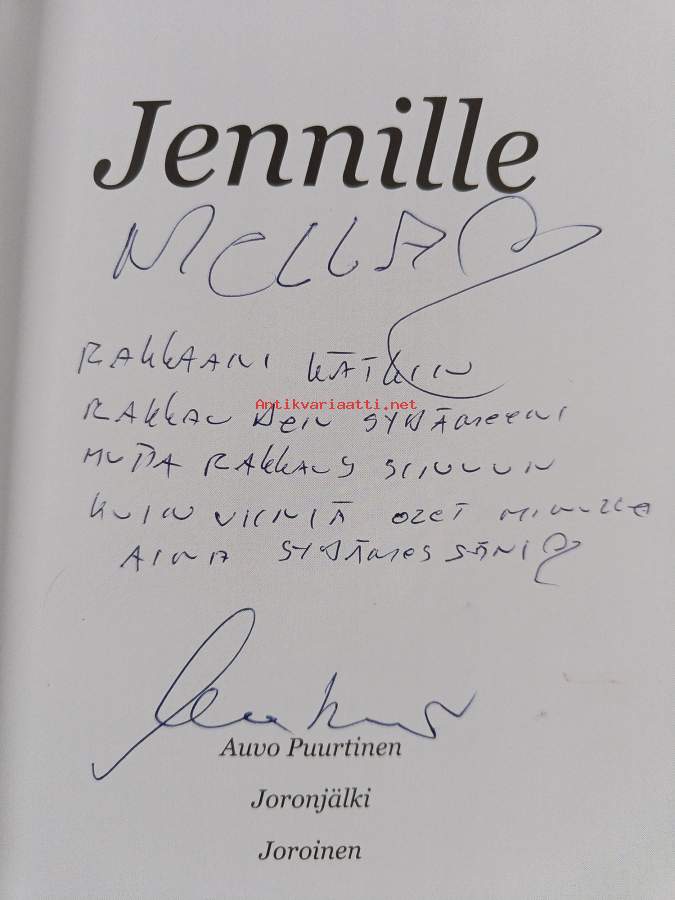 Jennille
MELLA
RAKKAANI KÄTKIN
Antikvariaatti.net
RAKKAUDEN SYDÄMEENI
MUTTA RAKKAUS SINUUN
KUIN VIINIÄ OLET MINULLE
AINA SYDÄMESSÄNI
Auvo Puurtinen
Joronjälki
Joroinen